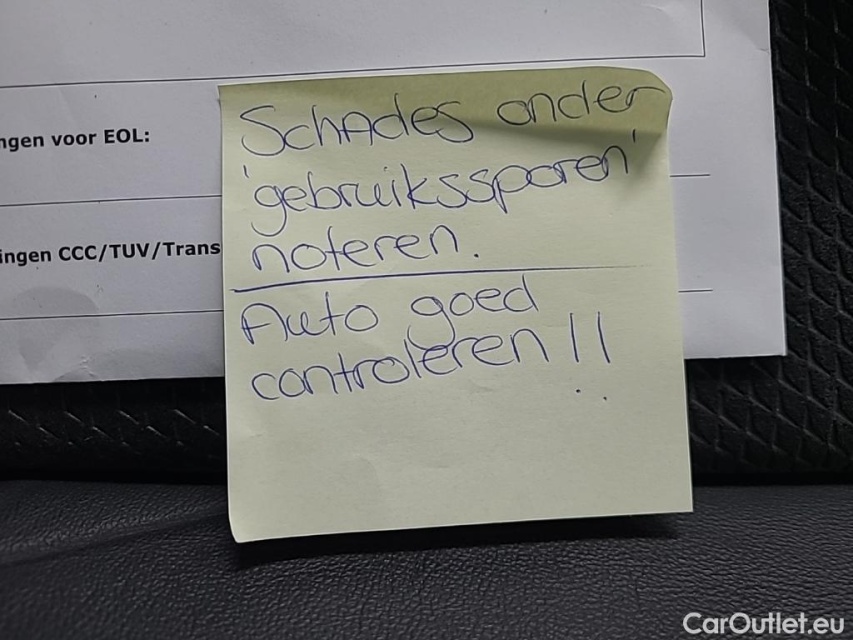 ngen voor EOL:
ingen CCC/TUV/Trans
Schades onder
'gebruikssporen'
noteren.
Auto goed
controleren!!
CarOutlet.eu